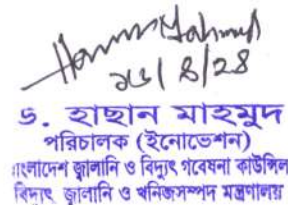 ২৫/৪/২৪
ড. হাছান মাহমুদ
পরিচালক (ইনোভেশন)
বাংলাদেশ জ্বালানি ও বিদ্যুৎ গবেষনা কাউন্সিল
বিদ্যুৎ, জ্বালানি ও খনিজসম্পদ মন্ত্রণালয়